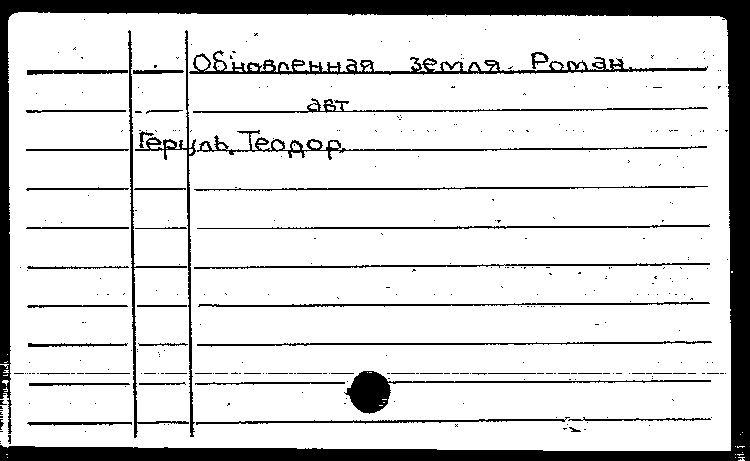 Обновленная земля. Роман.
авт
Герцль, Теодор.